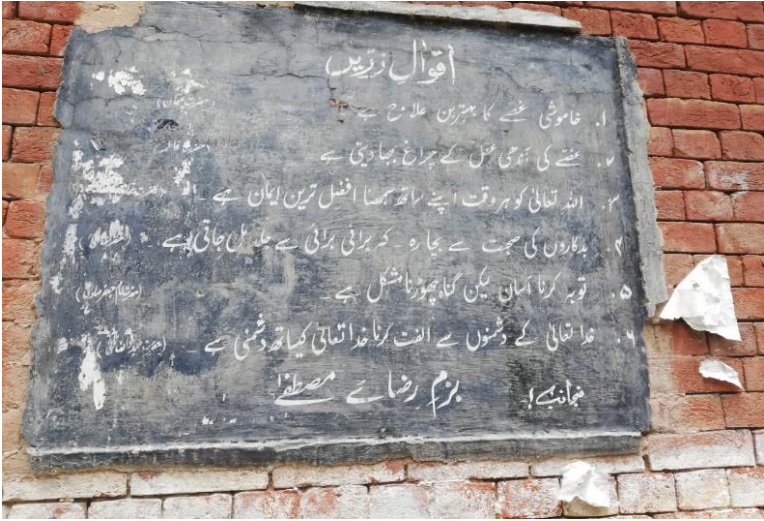 اقوالِ زریں
۱. خاموشی غصے کا بہترین علاج ہے (حضرت عثمان)
۲. غصے کی آندھی عقل کے چراغ بجھا دیتی ہے
۳. اللہ تعالیٰ کو ہر وقت اپنے ساتھ سمجھنا افضل ترین ایمان ہے
۴. بدکاروں کی صحبت سے بچارہ ۔ کہ برائی برائی سے جلد مل جاتی ہے
۵. توبہ کرنا آسان لیکن گناہ چھوڑنا مشکل ہے
۶. خدا تعالیٰ کے دشمنوں سے الفت کرنا خدا تعالیٰ کیساتھ دشمنی ہے
منجانب! بزمِ رضائے مصطفےٰ